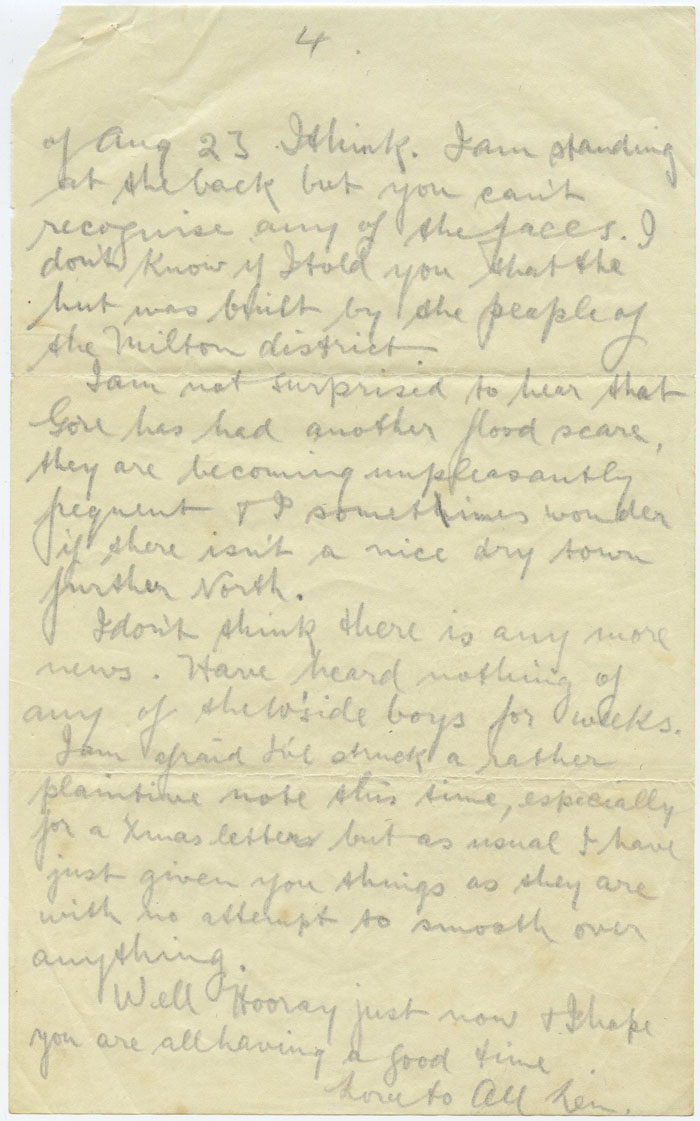 4.
of Aug 23 I think. I am standing
at the back but you can't
recognise any of the faces. I
don't know if I told you that the
hut was built by the people of
the Milton district.
I am not surprised to hear that
Gore has had another flood scare,
they are becoming unpleasantly
frequent & I sometimes wonder
if there isn't a nice dry town
further North.
I don't think there is any more
news. Have heard nothing of
any of the W'side boys for weeks.
I am afraid I've struck a rather
plaintive note this time, especially
for a Xmas letter but as usual I have
just given you things as they are
with no attempt to smooth over
anything.
Well Hooray just now & I hope
you are all having a good time
Love to All Len.